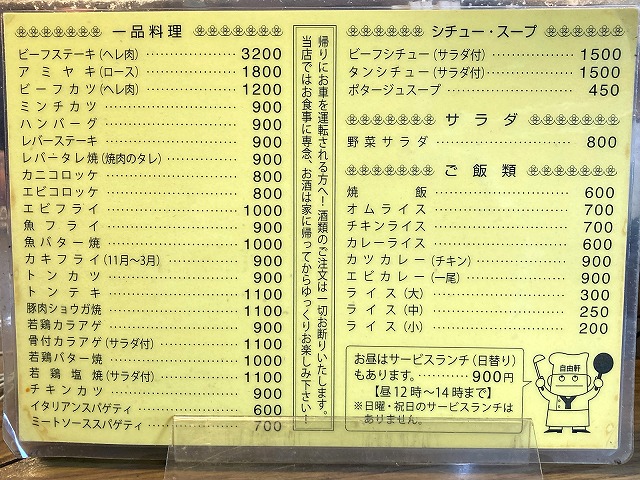 一品料理
ビーフステーキ(ヘレ肉) 3200
アミヤキ(ロース) 1800
ビーフカツ(ヘレ肉) 1200
ミンチカツ 900
ハンバーグ 900
レバーステーキ 900
レバータレ焼(焼肉のタレ) 900
カニコロッケ 800
エビコロッケ 800
エビフライ 1000
魚フライ 900
魚バター焼 1000
カキフライ(11月〜3月) 900
トンカツ 900
トンテキ 1100
豚肉ショウガ焼 1100
若鶏カラアゲ 900
骨付カラアゲ(サラダ付) 1100
若鶏バター焼 1000
若鶏塩焼(サラダ付) 1100
チキンカツ 900
イタリアンスパゲティ 600
ミートソーススパゲティ 700
帰りにお車を運転される方へ!酒類のご注文は一切お断りいたします。
当店ではお食事に専念、お酒は家に帰ってからゆっくりお楽しみ下さい!
シチュー・スープ
ビーフシチュー(サラダ付) 1500
タンシチュー(サラダ付) 1500
ポタージュスープ 450
サラダ
野菜サラダ 800
ご飯類
焼飯 600
オムライス 700
チキンライス 700
カレーライス 600
カツカレー(チキン) 900
エビカレー(一尾) 900
ライス(大) 300
ライス(中) 250
ライス(小) 200
お昼はサービスランチ(日替り)
もあります。 900円
【昼12時〜14時まで】
※日曜・祝日のサービスランチは
ありません。
自由軒